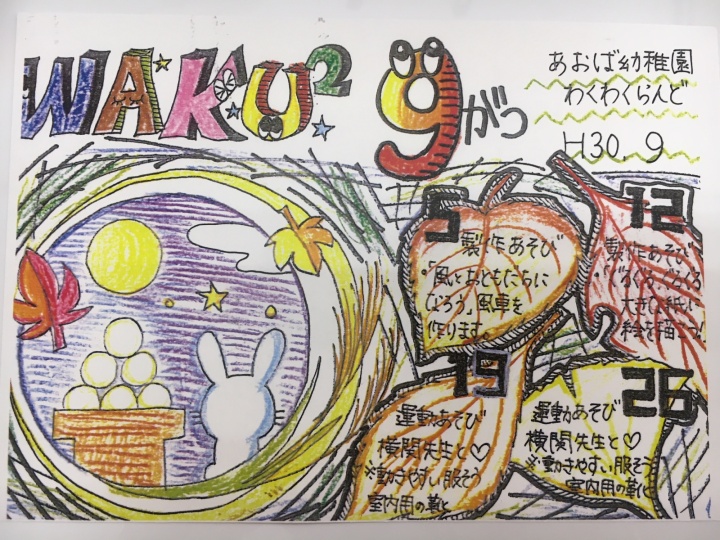 WAKU²
9がつ
あおば幼稚園
わくわくらんど
H30.9
5
製作あそび
"風とおともだちに
なろう」風車を
作ります
12
製作あそび
大きな紙に
絵を描こう!
19
運動あそび
横関先生と♡
※動きやすい服そう
室内用の靴と
26
運動あそび
横関先生と♡
※動きやすい服そう
室内用の靴と